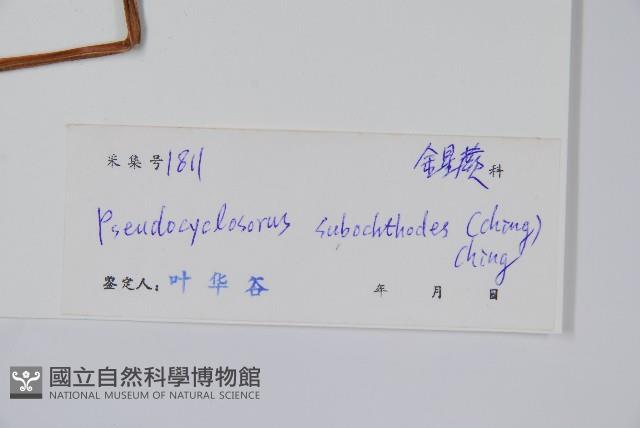 采集号 1811 金星蕨科
Pseudocyclosorus subochthodes (Ching)
Ching
鉴定人: 叶华谷 年 月 日
國立自然科學博物館
NATIONAL MUSEUM OF NATURAL SCIENCE